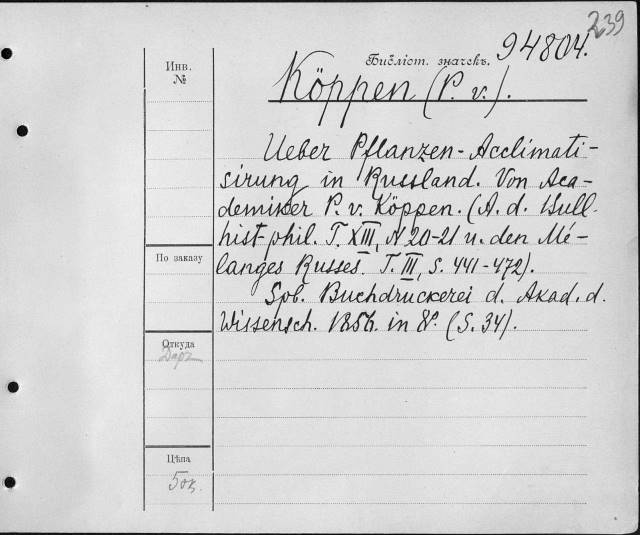 239
Библіот. значекъ. 94804.
Инв.
№
Köppen (P. v.).
Ueber Pflanzen-Acclimati-
sirung in Russland. Von Aca-
demiker P. v. Köppen. (A. d. Bull.
hist-phil. T. XIII, N 20-21 u. den Mé-
langes Russes. T. III, S. 441-472).
По заказу
Spb. Buchdruckerei d. Akad. d.
Wissensch. 1856. in 8°. (S. 34).
Откуда
Даръ
Цѣна
50к.